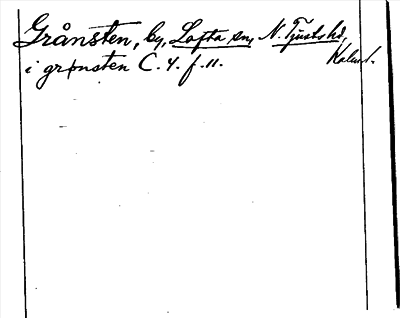 Grånsten, by, Lofta sn, N. Tjusts hd,
Kalm. l.
i grønsten C. 4. f. 11.